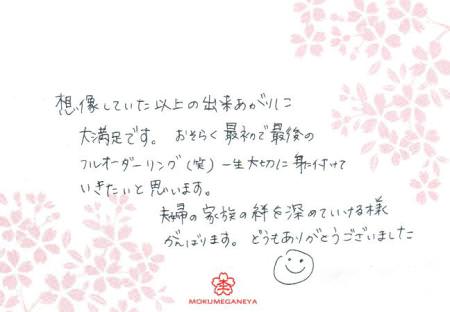 想像していた以上の出来あがりに
大満足です。 おそらく最初で最後の
フルオーダーリング(笑) 一生大切に身に付けて
いきたいと思います。
夫婦の家族の絆を深めていける様
がんばります。 どうもありがとうございました
MOKUMEGANEYA